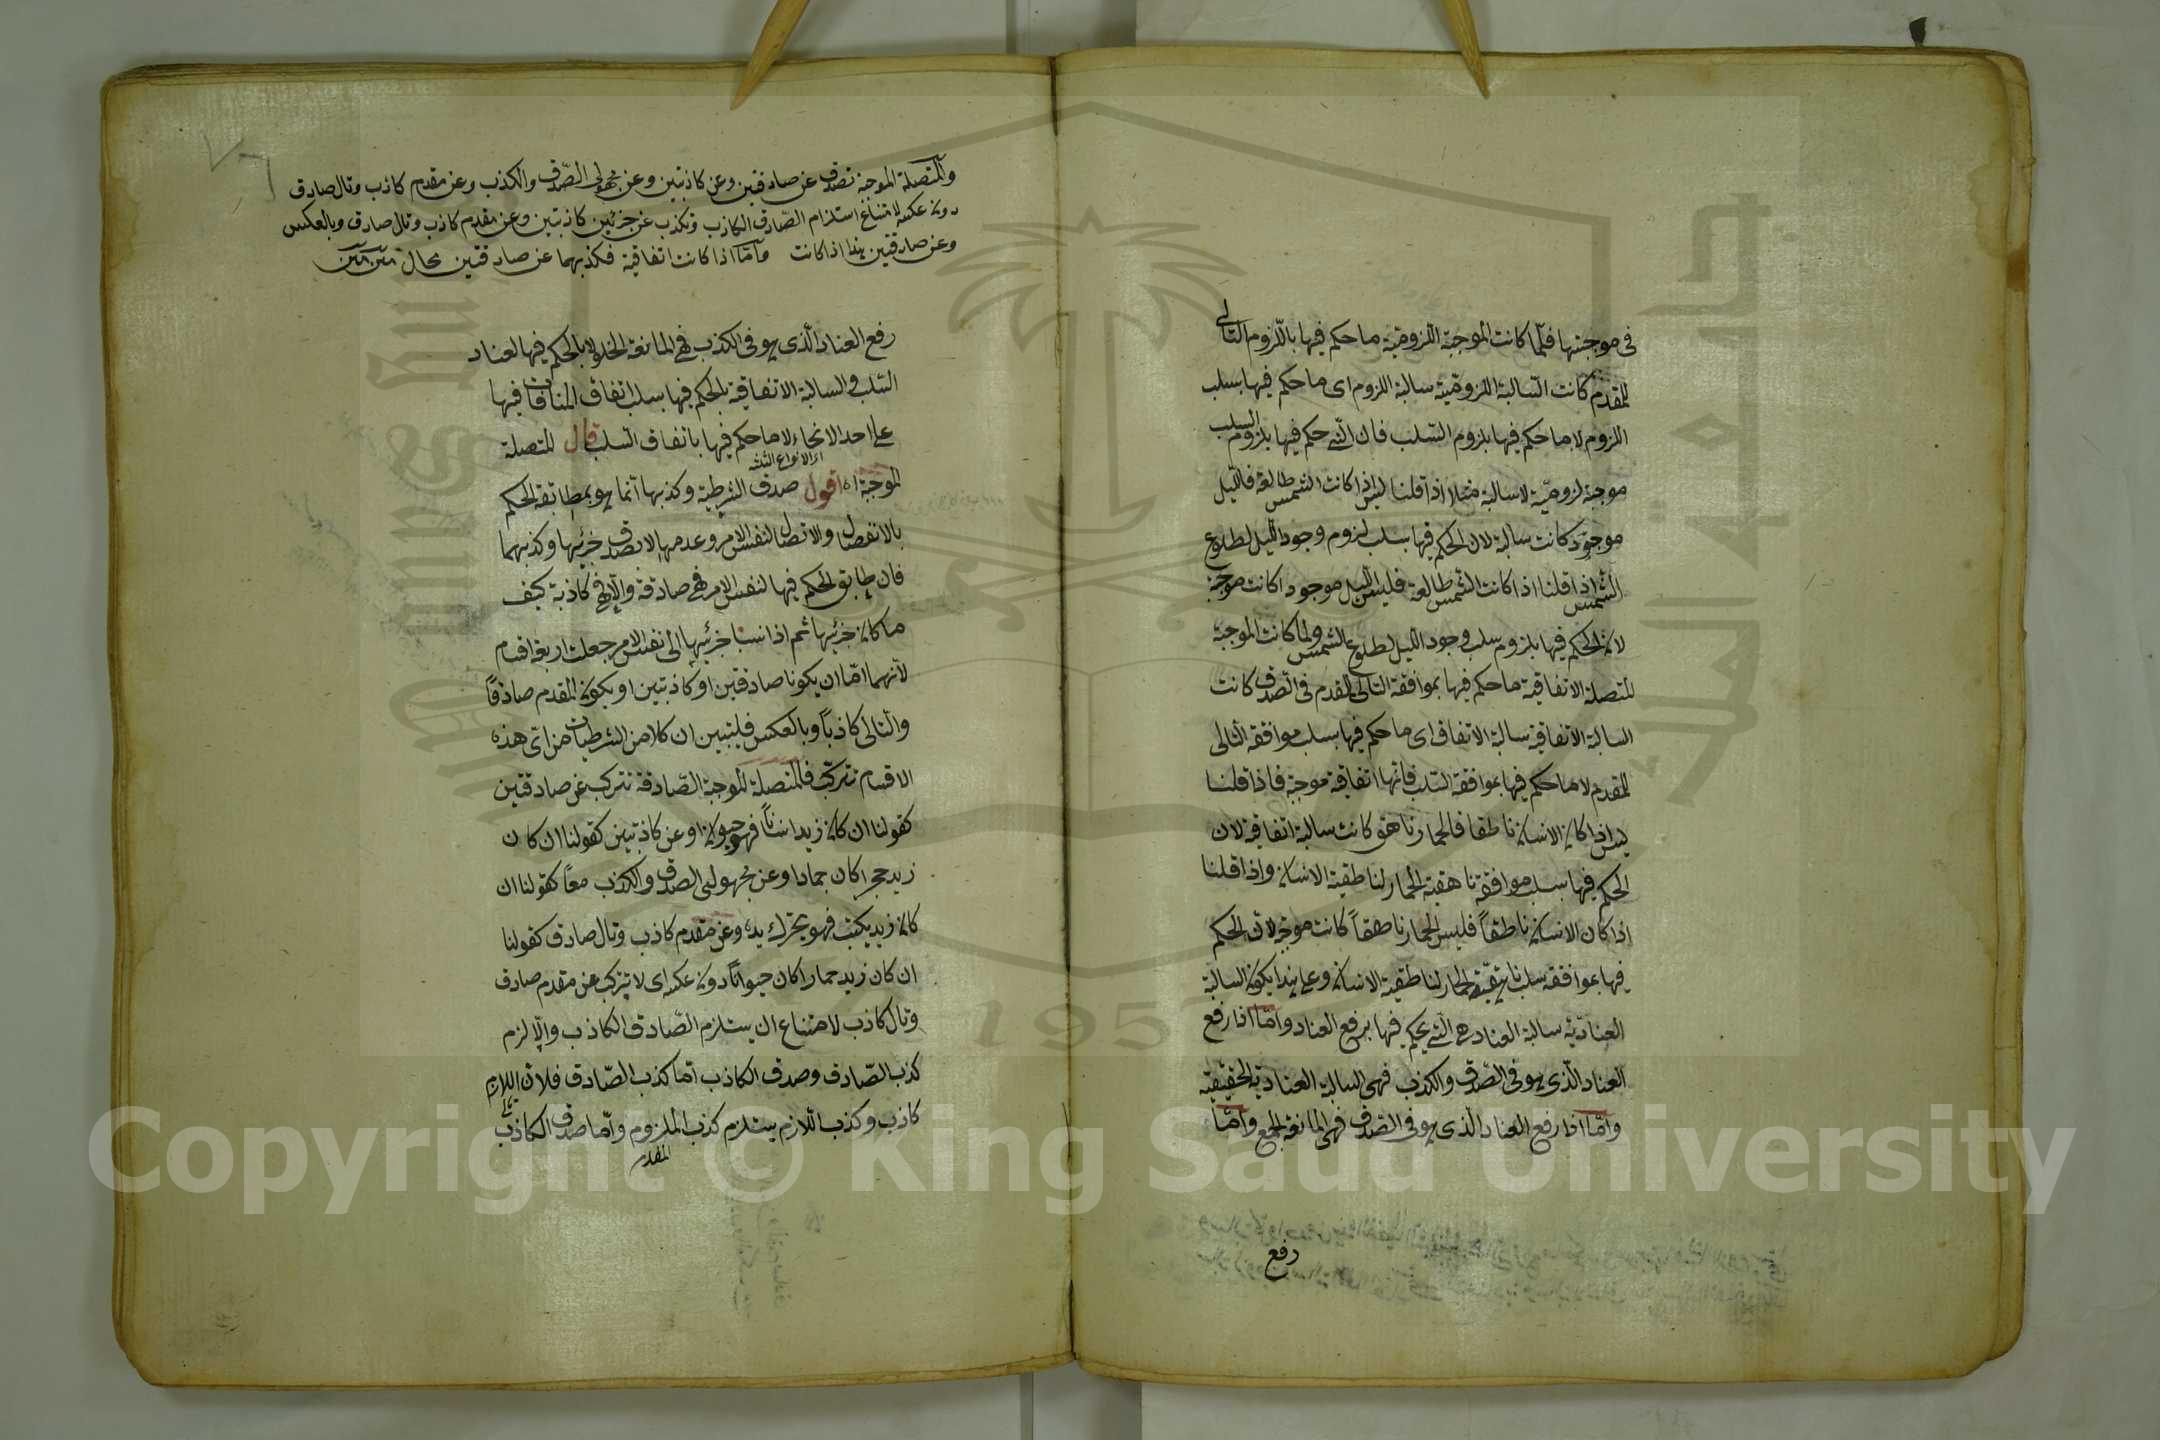 في موجبتها فلما كانت الموجبة اللزومية ما حكم فيها باللزوم التالى
للمقدم كانت السالبة اللزومية سالبة اللزوم اى ما حكم فيها بسلب
اللزوم لا ما حكم فيها بلزوم السلب فان التى حكم فيها بلزوم السلب
موجبة لزومية لا سالبة مثلا اذا قلنا ليس اذا كانت الشمس طالعة فالليل
موجود كانت سالبة لان الحكم فيها بسلب لزوم وجود الليل لطلوع
الشمس اذا قلنا اذا كانت الشمس طالعة فليس الليل موجودا كانت موجبة
لان الحكم فيها بلزوم سلب وجود الليل لطلوع الشمس ولما كانت الموجبة
المتصلة الاتفاقية ما حكم فيها بموافقة التالى للمقدم فى الصدق كانت
السالبة الاتفاقية سالبة الاتفاق اى ما حكم فيها بسلب موافقة التالى
للمقدم لا ما حكم فيها بموافقة السلب فانها اتفاقية موجبة فاذا قلنا
ليس اذا كان الانسان ناطقا فالحمار ناهق كانت سالبة اتفاقية لان
الحكم فيها بسلب موافقة ناهقية الحمار لناطقية الانسان واذا قلنا
اذا كان الانسان ناطقاً فليس الحمار ناهقاً كانت موجبة لان الحكم
فيها بموافقة سلب ناهقية الحمار لناطقية الانسان وعلى هذا يكون السالبة
العنادية سالبة العناد هى التى يحكم فيها برفع العناد واما اذا رفع
العناد الذى هو فى الصدق والكذب فهى السالبة العنادية الحقيقية
واما اذا رفع العناد الذى هو فى الصدق فهى المانعة الجمع واما
رفع
والمتصلة الموجبة تصدق عن صادقتين وعن كاذبتين وعن مجهولى الصدق والكذب وعن مقدم كاذب وتال صادق
دون عكسه لامتناع استلزام الصادق الكاذب وتكذب عن جزئين كاذبتين وعن مقدم كاذب وتال صادق وبالعكس
وعن صادقتين هذا اذا كانت واما اذا كانت اتفاقية فكذبهما عن صادقتين محال
رفع العناد الذى هو فى الكذب فهى المانعة الخلو لا بالحكم فيها لعناد
السلب والسالبة الاتفاقية بالحكم فيها بسلب اتفاق المنافات فيها
على احد الانحاء لا ما حكم فيها باتفاق السلب قال المتصلة
الموجبة اه اقول صدق الشرطية وكذبها انما هو بمطابقة الحكم
بالانفصال والاتصال لنفس الامر وعدمها لا بصدق جزئيها وكذبهما
فان طابق الحكم فيها لنفس الامر فهى صادقة والا فهى كاذبة كيف
ما كان جزئيها ثم اذا نسبنا جزئيها الى نفس الامر جعلت اربعة اقسام
لانهما اما ان يكونا صادقين او كاذبتين او يكون المقدم صادقاً
والتالى كاذباً وبالعكس فليتبين ان كلا من الشرطيات من اى هذه
الاقسام تتركب فالمتصلة الموجبة الصادقة تتركب عن صادقتين
كقولنا ان كان زيد انساناً فهو حيوان او عن كاذبتين كقولنا ان كان
زيد حجرا كان جمادا وعن مجهولتى الصدق والكذب معاً كقولنا ان
كان زيد يكتب فهو يتحرك يده وعن مقدم كاذب وتال صادق كقولنا
ان كان زيد حمارا كان حيواناً دون عكسه اى لا يتركب عن مقدم صادق
وتال كاذب لامتناع ان يستلزم الصادق الكاذب والا لزم
كذب الصادق وصدق الكاذب اما كذب الصادق فلان اللازم
كاذب وكذب اللازم يستلزم كذب الملزوم واما صدق الكاذب
المقدم
Copyright © King Saud University
1957